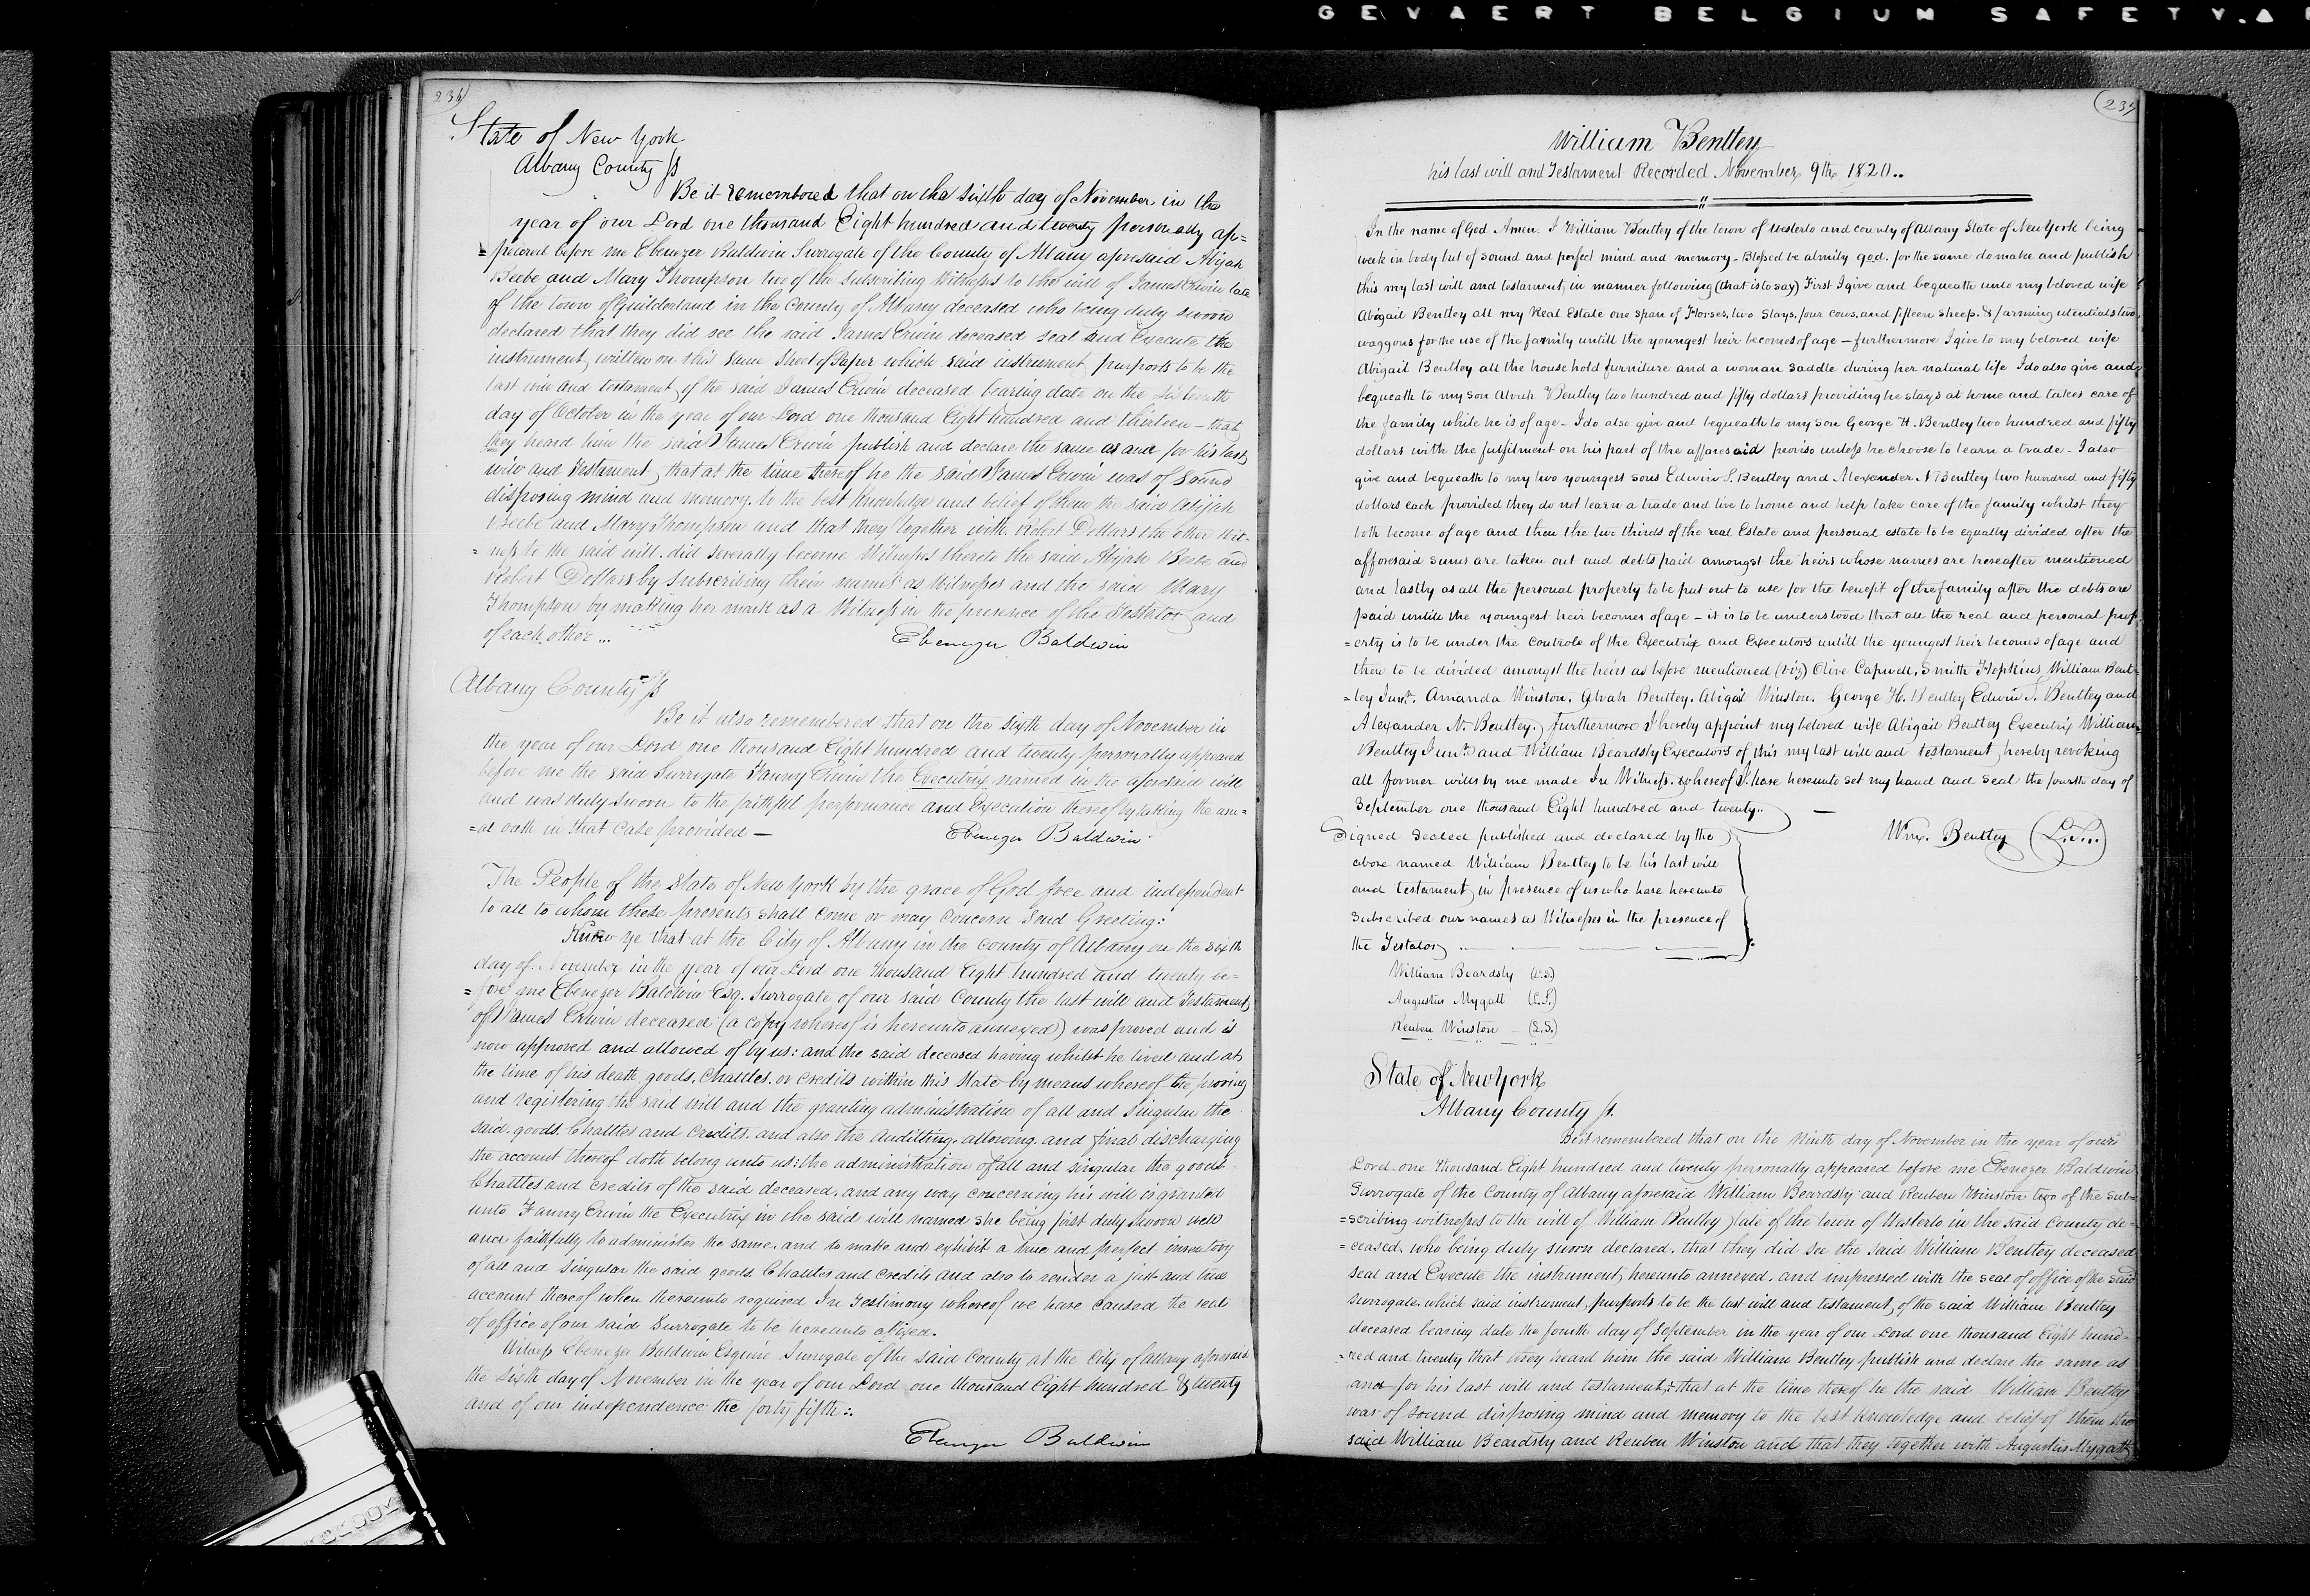 GEVAERT BELGIUM SAFETY
234
State of New York
Albany County ss
Be it remembered that on the sixth day of November in the
year of our Lord one thousand Eight hundred and twenty personally ap=
=peared before me Ebenezer Baldwin Surrogate of the County of Albany aforesaid Abijah
Beebe and Mary Thompson two of the subscribing Witnesses to the will of James Erwin late
of the town of Guilderland in the County of Albany deceased who being duly sworn
declared that they did see the said James Erwin deceased seal and Execute the
instrument, written on this same Sheet of Paper which said instrument, purports to be the
last will and testament, of the said James Erwin deceased bearing date on the
day of October in the year of our Lord one thousand Eight hundred and thirteen – that
they heard him the said James Erwin publish and declare the same as and for his last
will and Testament, that at the time thereof he the said James Erwin was of sound
disposing mind and memory. to the best knowledge and belief of them the said Abijah
Beebe and Mary Thompson and that they together with Robert Dollars the other Wit-
=ness to the said will. did severally become Witnesses thereto the said Abijah Beebe and
Robert Dollars by Subscribing their names as Witnesses and the said Mary
Thompson by making her mark as a Witness in the presence of the Testator and
of each other ...
Ebenezer Baldwin
Albany County ss
Be it also remembered that on the sixth day of November in
the year of our Lord one thousand Eight hundred and twenty personally appeared
before me the said Surrogate Fanny Erwin the Executrix named in the aforesaid will
and was duly sworn to the faithful performance and Execution thereof by taking the usu=
=al oath in that case provided —
Ebenezer Baldwin
The People of the State of New York by the grace of God free and independent
to all to whom these presents shall come or may concern send Greeting:
Know ye that at the City of Albany in the county of Albany on the sixth
day of November in the year of our Lord one thousand Eight hundred and twenty be=
=fore me Ebenezer Baldwin Esq. Surrogate of our said County the last will and Testament
of James Erwin deceased (a copy whereof is hereunto annexed) was proved and is
now approved and allowed of by us: and the said deceased having whilst he lived and at
the time of his death goods, Chattles. or credits within this State by means whereof the proving
and registering the said will and the granting administration of all and singular the
said. goods. Chattles and Credits. and also the Auditting. allowing. and final discharging
the account thereof doth belong unto us: the administration of all and singular the goods
Chattles and credits of the said deceased. and any way concerning his will is granted
unto Fanny Erwin the Executrix in the said will named she being first duly sworn well
and faithfully to administer the same. and to make and exhibit a true and perfect inventory
of all and singular the said goods. Chattles and credits and also to render a just and true
account thereof when thereunto required In Testimony whereof we have caused the seal
of office of our said Surrogate to be hereunto afixed.
Witness Ebenezer Baldwin Esquire Surrogate of the said County at the City of Albany aforesaid
the sixth day of November in the year of our Lord one thousand Eight hundred & twenty
and of our independence the forty fifth:.
Ebenezer Baldwin
235
William Bentley
his last will and Testament Recorded November 9th 1820..
In the name of God Amen. I William Bentley of the town of Westerlo and county of Albany State of New York being
weak in body but of sound and perfect mind and memory – Blessed be almity god. for the same do make and publish
this my last will and testament, in manner following (that is to say) First I give and bequeath unto my beloved wife
Abigail Bentley all my Real Estate one span of Horses, two Slays, four cows, and fifteen sheep. & farming utentials two
waggons for the use of the family untill the youngest heir becomes of age – furthermore I give to my beloved wife
Abigail Bentley all the house hold furniture and a woman saddle during her natural life I do also give and
bequeath to my son Alvah Bentley two hundred and fifty dollars providing he stays at home and takes care of
the family while he is of age – I do also give and bequeath to my son George H. Bentley two hundred and fifty
dollars with the fulfilment on his part of the afforesaid proviso unless he choose to learn a trade – I also
give and bequeath to my two youngest sons Edwin S. Bentley and Alexander N Bentley two hundred and fifty
dollars each provided they do not learn a trade and live to home and help take care of the family whilst they
both become of age and then the two thirds of the real Estate and personal estate to be equally divided after the
afforesaid sums are taken out and debts paid amongst the heirs whose names are hereafter mentioned
and lastly as all the personal property to be put out to use for the benefit of the family after the debts are
paid untill the youngest heir becomes of age – it is to be understood that all the real and personal prop
=erty is to be under the controle of the Executrix and Executors untill the youngest heir becomes of age and
then to be divided amongst the heirs as before mentioned (viz) Olive Capwell, Smith Hopkins, William Bent-
=ley Junr. Amanda Winston. Alvah Bentley. Abigail Winston. George H. Bentley Edwin S. Bentley and
Alexander N. Bentley, furthermore I hereby appoint my beloved wife Abigail Bentley Executrix William
Bentley Junr. and William Beardsly Executors of this my last will and testament, hereby revoking
all former wills by me made In Witness. whereof I have hereunto set my hand and seal the fourth day of
September one thousand Eight hundred and twenty..
Wm. Bentley (L.S.)
Signed sealed published and declared by the
above named William Bentley to be his last will
and testament, in presence of us who have hereunto
subscribed our names as Witnesses in the presence of
the Testator
William Beardsly (L.S.)
Augustus Mygatt (L.S.)
Reuben Winston (L.S.)
State of New York
Albany County ss.
Be it remembered that on the Ninth day of November in the year of our
Lord one thousand Eight hundred and twenty personally appeared before me Ebenezer Baldwin
Surrogate of the County of Albany aforesaid William Beardsly and Reuben Winston two of the sub=
=scribing witnesses to the will of William Bentley late of the town of Westerlo in the said County de=
=ceased. who being duly sworn declared. that they did see the said William Bentley deceased
seal and Execute the instrument, hereunto annexed. and impressed with the seal of office of the said
Surrogate, which said instrument, purports to be the last will and testament, of the said William Bentley
deceased bearing date the fourth day of September in the year of our Lord one thousand Eight hund=
=red and twenty that they heard him the said William Bentley publish and declare the same as
and for his last will and testament; that at the time thereof he the said William Bentley
was of sound disposing mind and memory to the best knowledge and belief of them the
said William Beardsly and Reuben Winston and that they together with Augustus Mygatt